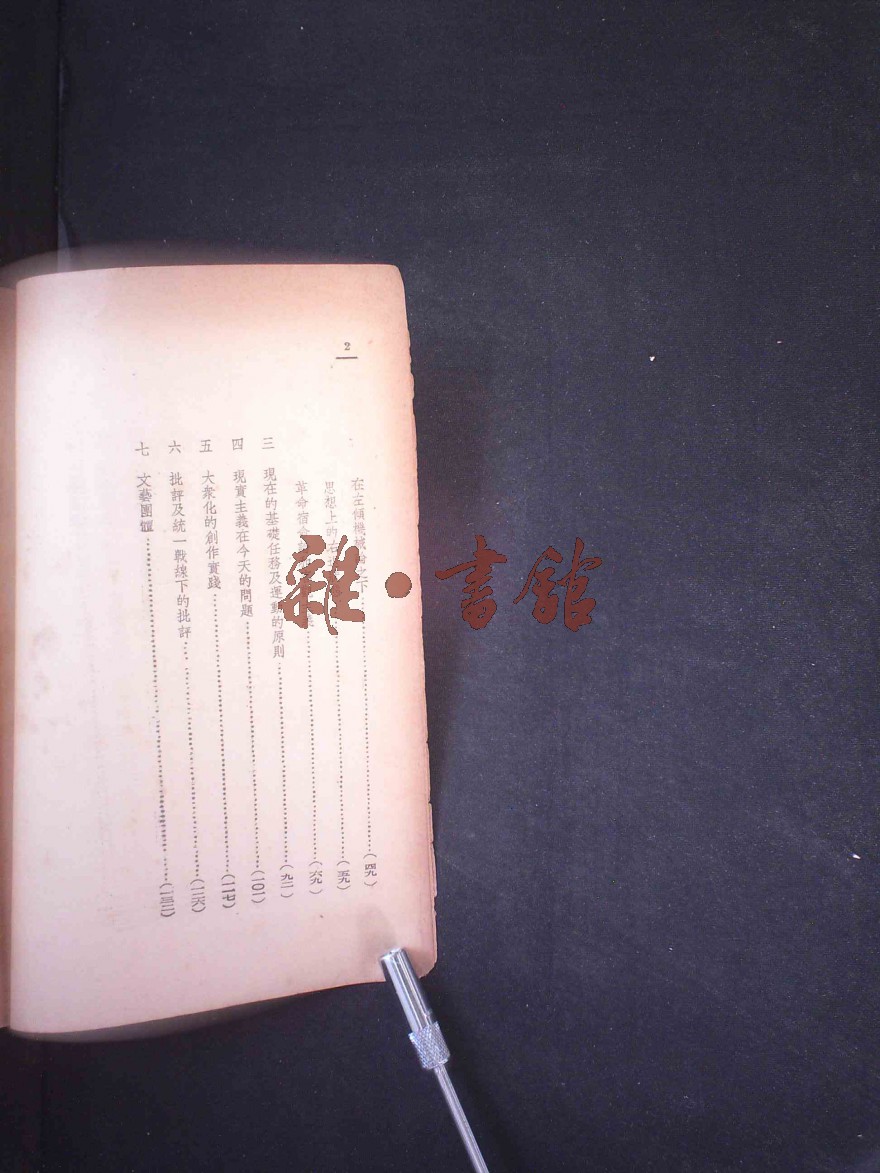 2
在左傾機械論之下……(四九)
思想上的右……(五九)
革命宿命……(六九)
三 現在的基礎任務及運動的原則……(九二)
四 現實主義在今天的問題……(一〇一)
五 大衆化的創作實踐……(一一七)
六 批評及統一戰線下的批評……(一二六)
七 文藝團體……(一三二)
雜·書館